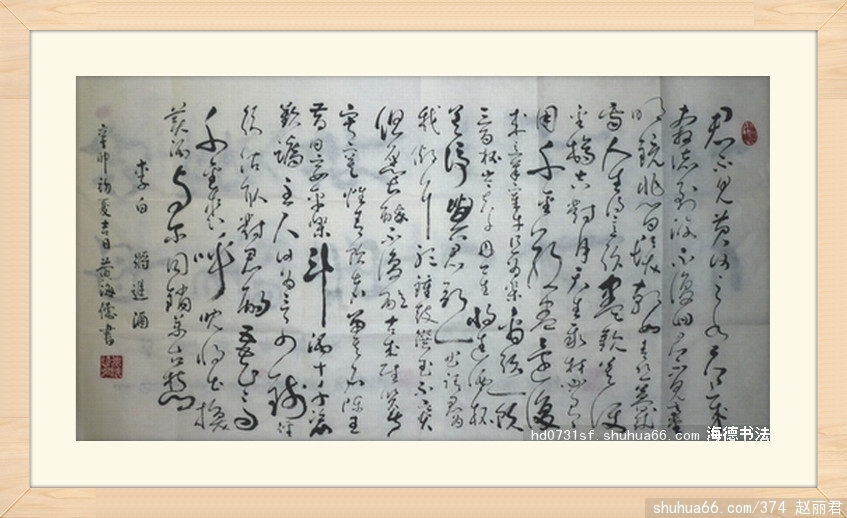 君不見黄河之水天上来
奔流到海不復回君不見高堂
明鏡悲白髮朝如青丝暮成
雪人生得意须盡歡莫使
金樽空對月天生我材必有
用千金散盡還復
来烹羊宰牛且为樂會须一饮
三百杯岑夫子丹丘生將進酒杯
莫停與君歌一曲請君为
我倾耳听鐘鼓馔玉不足贵
但愿长醉不復醒古来聖賢皆
寂寞惟有饮者留其名陈王
昔时宴平樂斗酒十千恣
歡謔主人何为言少钱徑
须沽取對君酌五花馬
千金裘呼兒將出换
美酒與尔同銷萬古愁
李白 將進酒
辛卯初夏吉日黄海德書
hd0731sf.shuhua66.com 海德书法
shuhua66.com/374 赵丽君